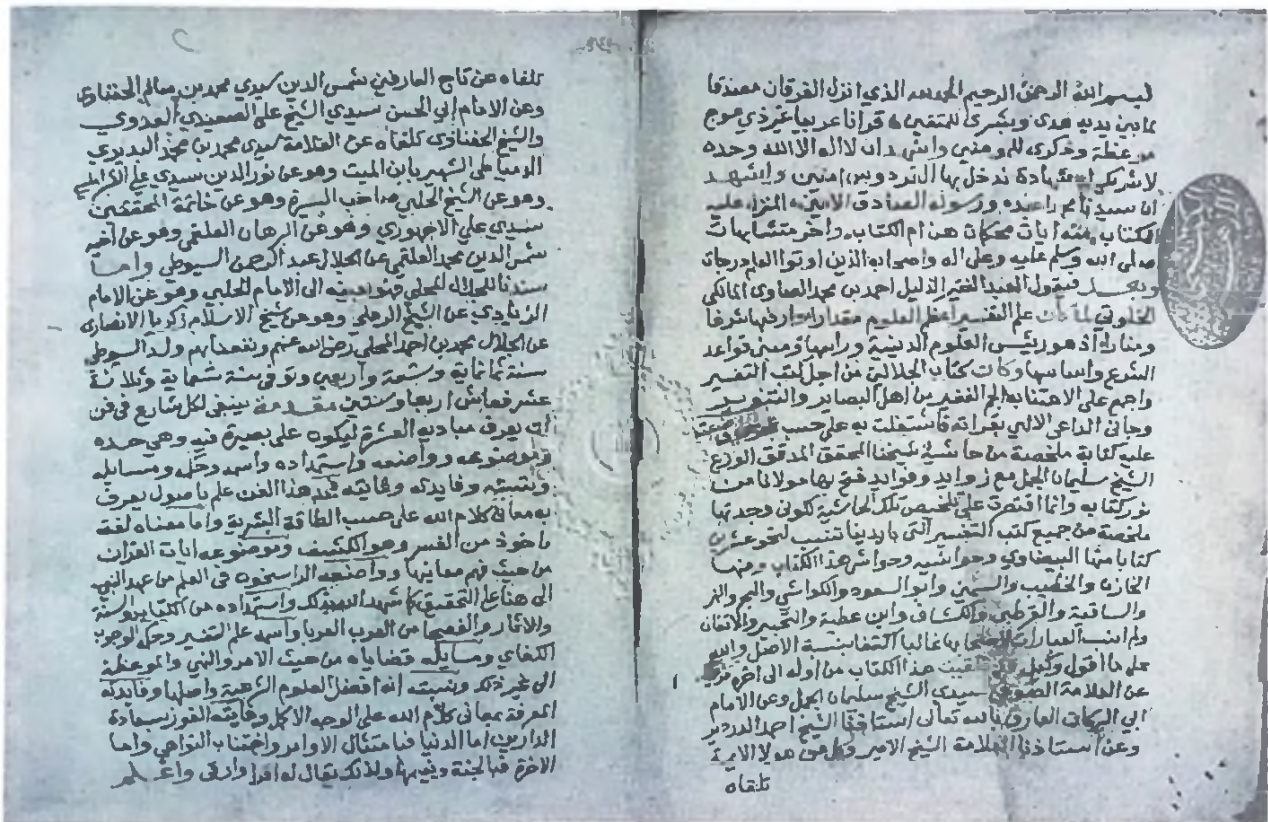 بسم الله الرحمن الرحيم الحمد لله الذي انزل الفرقان مصدقا
لما بين يديه هدى وبشرى للمتقين قرانا عربيا غير ذي عوج
موعظة وذكرى للمومنين واشهد ان لا اله الا الله وحده
لا شريك له شهادة ندخل بها الفردوس امنين واشهد
ان سيدنا محمدا عبده ورسوله الصادق الامين المنزل عليه
الكتاب منه ايات محكمات هن ام الكتاب واخر متشابهات
صلى الله وسلم عليه وعلى اله واصحابه الذين اوتوا العلم درجات
وبعد فيقول العبد الفقير الذليل احمد بن محمد الصاوي المالكي
الخلوتي لما كان علم التفسير اعظم العلوم مقدارا وارفعها شرفا
ومنارا اذ هو رئيس العلوم الدينية وراسها ومبنى قواعد
الشرع واساسها وكان كتاب الجلالين من اجل كتب التفسير
واجمع على الاعتنا به الجم الغفير من اهل البصاير والتنوير
وجاني الداعي الالهي بقراته فاشتغلت به على حسب
عليه كتابة ملخصة من حاشية شيخنا المحقق المدقق الورع
الشيخ سليمان الجمل مع زوايد وفوايد فتح بها مولانا من
نور كتابه وانما اقتصرت على تلخيص تلك الحاشية لكوني وجدتها
ملخصة من جميع كتب التفسير التي بايدينا تنسب لنحو عشرين
كتابا منها البيضاوي وحواشيه وحواشي هذا الكتاب ومنها
الخازن والخطيب والسمين وابو السعود والكواشي والبحر والنهر
والساقية والقرطبي والكشاف وابن عطية والتحبير والاتقان
ولم انسب العبارات لاصحابها غالبا اكتفا بنسبة الاصل والله
على ما اقول وكيل وقد تلقيت هذا الكتاب من اوله الى اخره
عن العلامة الصوفي سيدي الشيخ سليمان الجمل وعن الامام
ابي البركات العارف بالله تعالى استاذنا الشيخ احمد الدردير
وعن استاذنا العلامة الشيخ الامير وكل من هولا الايمة
تلقاه
تلقاه عن تاج العارفين شمس الدين سيدي محمد بن سالم الحفناوي
وعن الامام ابي الحسن سيدي الشيخ علي الصعيدي العدوي
والشيخ الحفناوي تلقاه عن العلامة سيدي محمد بن محمد البديري
الدمياطي الشهير بابن الميت وهو عن نور الدين سيدي علي الشبراملسي
وهو عن الشيخ الحلبي صاحب السيرة وهو عن خاتمة المحققين
سيدي علي الاجهوري وهو عن البرهان العلقمي وهو عن اخيه
شمس الدين محمد العلقمي عن الجلال عبد الرحمن السيوطي واما
سندنا للجلال المحلي فبواسطه الى الامام الحلبي وهو عن الامام
الزيادي عن الشيخ الرملي وهو عن شيخ الاسلام زكريا الانصاري
عن الجلال محمد بن احمد المحلي رضي الله عنهم ونفعنا بهم ولد السيوطي
سنة ثمانماية وتسعة واربعين وتوفي سنة تسعماية وثلاثة
عشر فعاش اربعا وستين مقدمة ينبغي لكل شارع في فن
ان يعرف مباديه العشرة ليكون على بصيرة فيه وهي حده
وموضوعه وواضعه واستمداده واسمه وحكمه ومسايله
ونسبته وفايدته وغايته فحد هذا الفن علم باصول يعرف
به معاني كلام الله على حسب الطاقة البشرية واما معناه لغة
ماخوذ من الفسر وهو الكشف وموضوعه ايات القران
من حيث فهم معانيها وواضعه الراسخون في العلم من عهد النبي
الى هنا على التحقيق كما شهد الله بذلك واستمداده من الكتاب والسنة
والاثار والفصحا من العرب العربا واسمه علم التفسير وحكمه الوجوب
الكفاي ومسايله قضاياه من حيث الامر والنهي والموعظة
الى غير ذلك ونسبته انه افضل العلوم الشرعية واصلها وفايدته
المعرفة بمعاني كلام الله على الوجه الاكمل وغايته الفوز بسعادة
الدارين اما الدنيا فبامتثال الاوامر واجتناب النواهي واما
الاخرة فبالجنة ونعيمها ولذلك يقال له اقرا وارقى واعلم